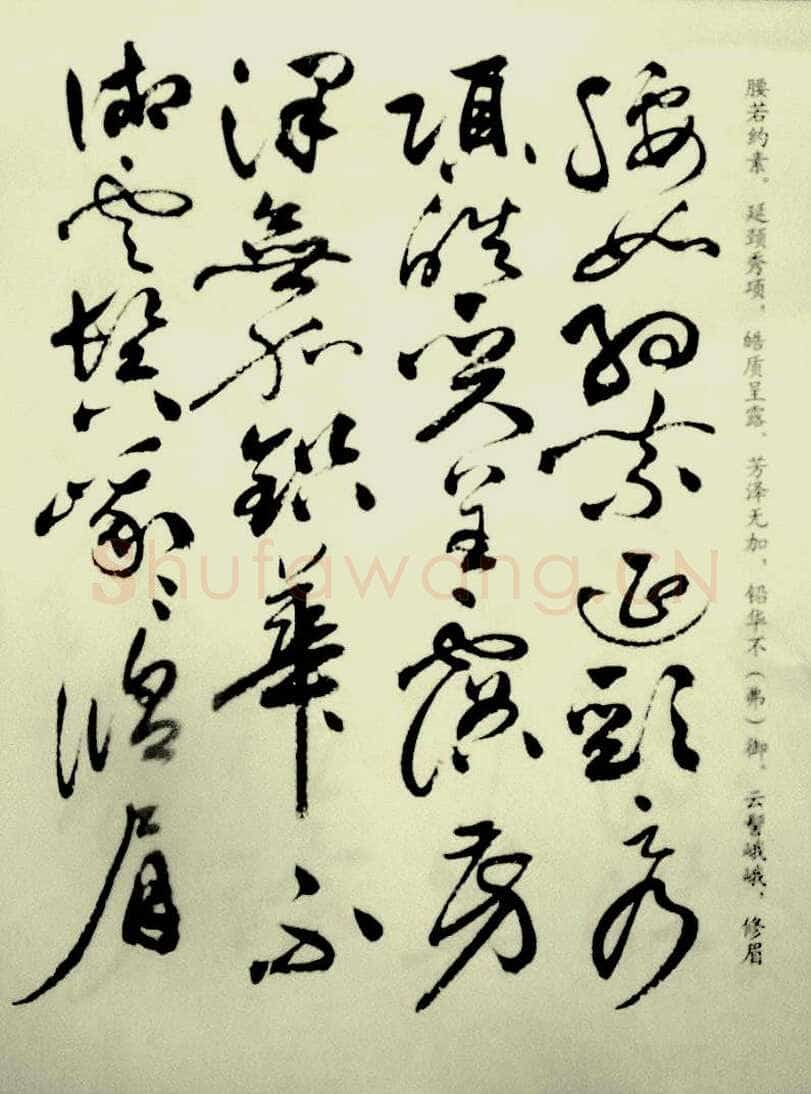 腰若约素。延颈秀项，皓质呈露。芳泽无加，铅华不（弗）御。云髻峨峨，修眉
腰如約素延頸秀
項皓質呈露芳
澤無加鉛華不
御雲髻峨々脩眉
Shufawang.CN